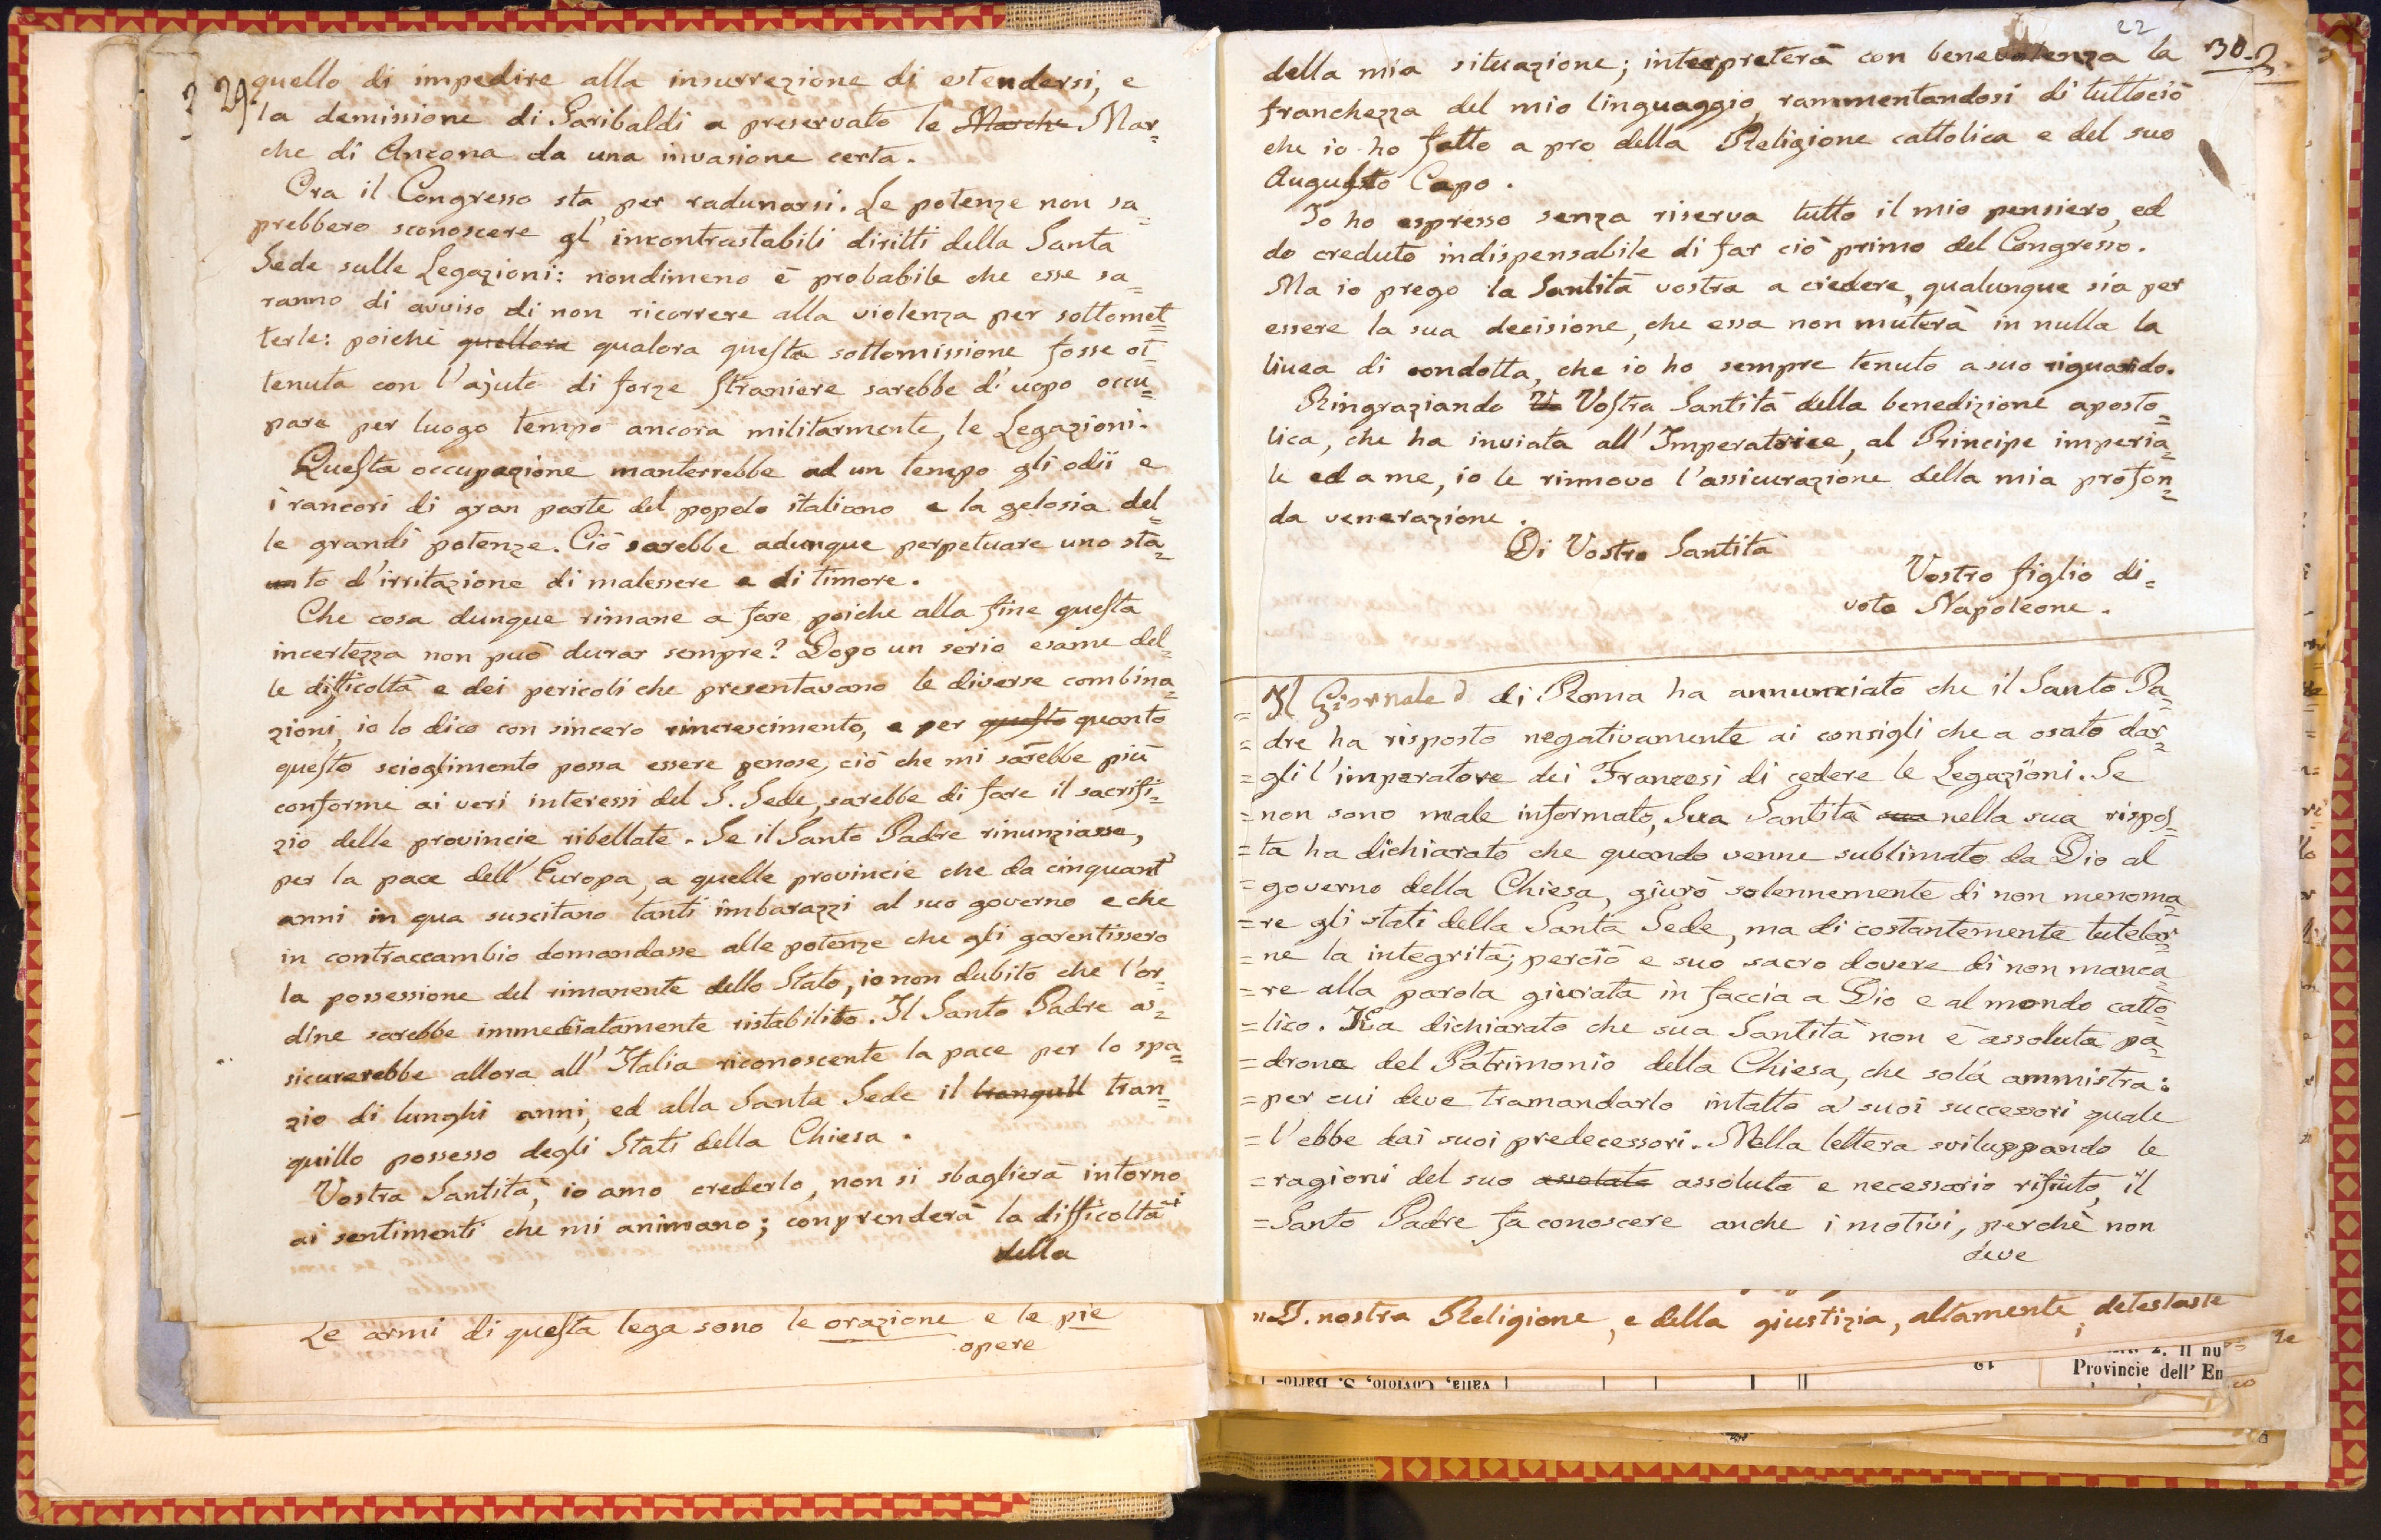 29
quello di impedire alla insurrezione di estendersi, e
la demissione di Garibaldi a preservato le Marche Mar=
che di Ancona da una invasione certa.
Ora il Congresso sta per radunarsi. Le potenze non sa=
prebbero sconoscere gl' incontrastabili diritti della Santa
Sede sulle Legazioni: nondimeno è probabile che esse sa=
ranno di avviso di non ricorrere alla violenza per sottomet=
terle: poichè quallora qualora questa sottomissione fosse ot=
tenuta con l'ajuto di forze straniere sarebbe d'uopo occu=
pare per luogo tempo ancora militarmente, le Legazioni.
Questa occupazione manterrebbe ad un tempo gli odii e
i rancori di gran parte del popolo italiano e la gelosia del=
le grandi potenze. Ciò sarebbe adunque perpetuare uno sta=
to d'irritazione di malessere e di timore.
Che cosa dunque rimane a fare poiche alla fine questa
incertezza non può durar sempre? Dopo un serio esame del=
le difficoltà e dei pericoli che presentavano le diverse combina=
zioni, io lo dico con sincero rincrescimento, e per questo quanto
questo scioglimento possa essere penose, ciò che mi sarebbe più
conforme ai veri interessi del S. Sede, sarebbe di fare il sacrifi=
zio delle provincie ribellate. Se il Santo Padre rinunziasse,
per la pace dell' Europa, a quelle provincie che da cinquant'
anni in qua suscitano tanti imbarazzi al suo governo e che
in contraccambio domandasse alle potenze che gli garentissero
la possessione del rimanente dello Stato, io non dubito che l'or=
dine sarebbe immediatamente ristabilito. Il Santo Padre as=
sicurerebbe allora all' Italia riconoscente la pace per lo spa=
zio di lunghi anni, ed alla Santa Sede il tranqull tran=
quillo possesso degli Stati della Chiesa.
Vostra Santità, io amo crederlo, non si sbaglierà intorno
ai sentimenti che mi animano; comprenderà la difficoltà
della
Le armi di questa lega sono le orazione e le pie
opere
22
30
della mia situazione; interpreterà con benevolenza la
franchezza del mio linguaggio, rammentandosi di tuttociò
che io hò fatto a pro della Religione cattolica e del suo
Augusto Capo.
Io ho espresso senza riserva tutto il mio pensiero, ed
do creduto indispensabile di far ciò primo del Congresso.
Ma io prego la Santità vostra a credere, qualunque sia per
essere la sua decisione, che essa non muterà in nulla la
linea di condotta, che io ho sempre tenuto a suo riguardo.
Ringraziando V. Vostra Santità della benedizione aposto=
lica, che ha inviata all' Imperatrice, al Principe imperia=
le ed a me, io le rinnovo l'assicurazione della mia profon=
da venerazione.
Di Vostra Santità
Vostro figlio di=
voto Napoleone.
= Il Giornale di Roma ha annunziato che il Santo Pa=
= dre ha risposto negativamente ai consigli che a osato dar=
= gli l'imperatore dei Francesi di cedere le Legazioni. Se
= non sono male informato, Sua Santità sua nella sua rispos=
= ta ha dichiarato che quando venne sublimato da Dio al
= governo della Chiesa, giurò solennemente di non menoma=
= re gli stati della Santa Sede, ma di costantemente tutelar=
= ne la integrità; perciò e suo sacro dovere di non manca=
= re alla parola giurata in faccia a Dio e al mondo catto=
= lico. Ha dichiarato che sua Santità non è assoluta pa=
= drona del Patrimonio della Chiesa, che solà ammistra:
= per cui deve tramandarlo intatto a' suoi successori quale
= l'ebbe dai suoi predecessori. Nella lettera sviluppando le
= ragioni del suo assolato assoluto e necessario rifiuto, il
= Santo Padre fa conoscere anche i motivi, perchè non
deve
"S. nostra Religione, e della giustizia, altamente, detestaste
Provincie dell' Em